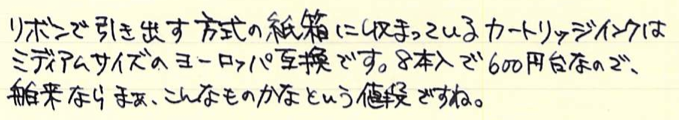 リボンで引き出す方式の紙箱に収まっているカートリッジインクは
ミディアムサイズのヨーロッパ互換です。8本入で600円台なので、
舶来ならまぁ、こんなものかなという値段ですね。